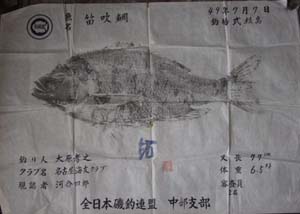 魚名 笛吹鯛
49年9月7日
釣場 式根島
釣り人 大原孝之
クラブ名 名古屋海友クラブ
現認者 河合四郎
叉長 77.0cm
体重 6.5kg
審査員
全日本磯釣連盟 中部支部